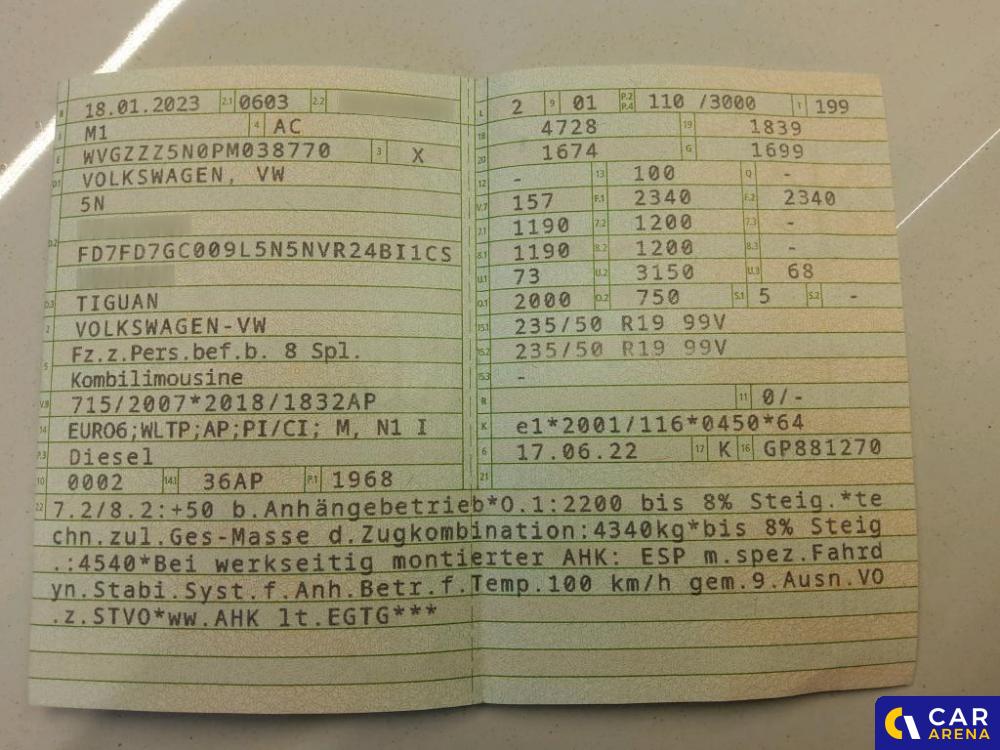 B 18.01.2023 2.1 0603 2.2
J M1 4 AC
E WVGZZZ5N0PM038770 3 X
D.1 VOLKSWAGEN, VW
5N
D.2 FD7FD7GC009L5N5NVR24BI1CS
D.3 TIGUAN
2 VOLKSWAGEN-VW
5 Fz.z.Pers.bef.b. 8 Spl.
Kombilimousine
V.9 715/2007*2018/1832AP
14 EURO6;WLTP;AP;PI/CI; M, N1 I
P.3 Diesel
10 0002 14.1 36AP P.1 1968
L 2 9 01 P.2 P.4 110 /3000 T 199
18 4728 19 1839
20 1674 G 1699
12 - 13 100 Q -
V.7 157 F.1 2340 F.2 2340
7.1 1190 7.2 1200 7.3 -
8.1 1190 8.2 1200 8.3 -
U.1 73 U.2 3150 U.3 68
O.1 2000 O.2 750 S.1 5 S.2 -
15.1 235/50 R19 99V
15.2 235/50 R19 99V
15.3 -
R 11 0/-
K e1*2001/116*0450*64
6 17.06.22 17 K 16 GP881270
21
22 7.2/8.2:+50 b.Anhängebetrieb*O.1:2200 bis 8% Steig.*te
chn.zul.Ges-Masse d.Zugkombination:4340kg*bis 8% Steig
.:4540*Bei werkseitig montierter AHK: ESP m.spez.Fahrd
yn.Stabi.Syst.f.Anh.Betr.f.Temp.100 km/h gem.9.Ausn.VO
.z.STVO*ww.AHK lt.EGTG***
CAR
ARENA